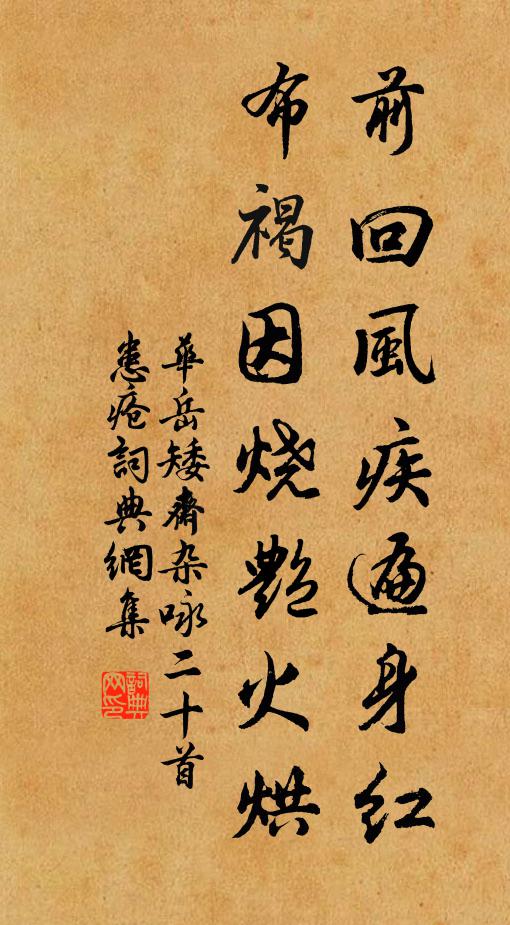 前回風疾遍身紅
布褐因烧艷火烘
華岳矮齋杂咏二十首
患疮詞典網集
詞典網印